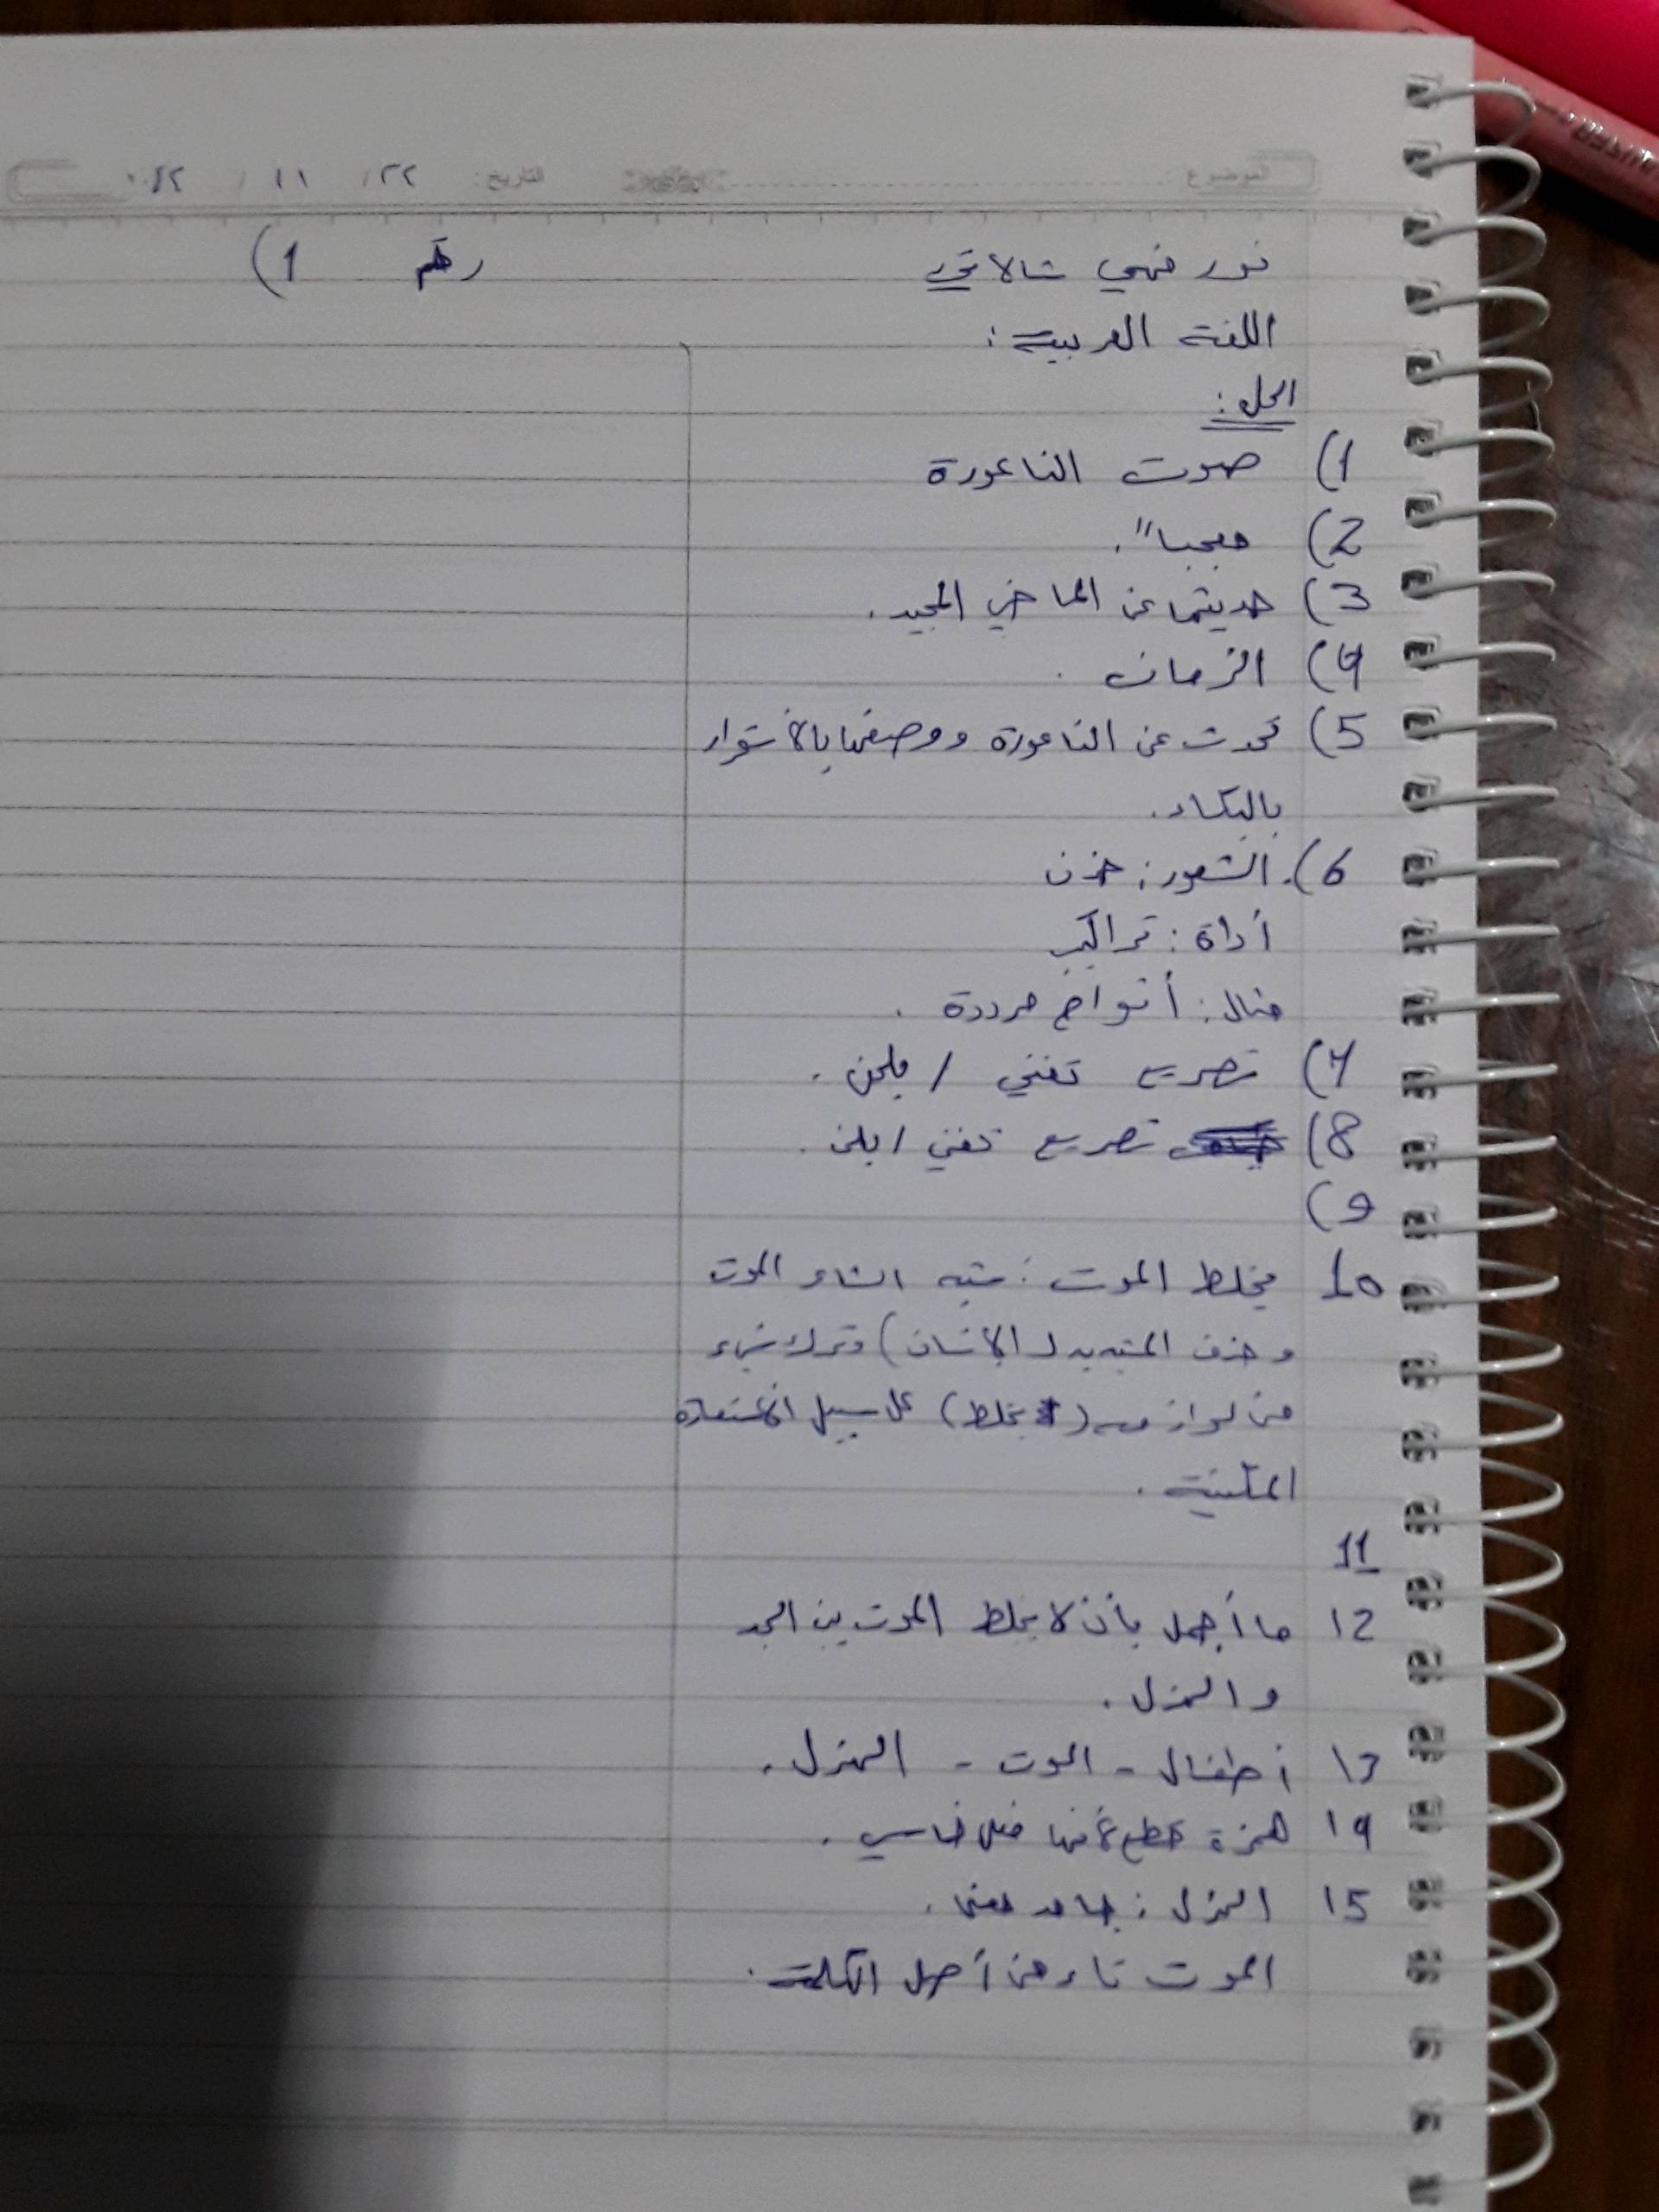 الموضوع التاريخ: ٢٢ / ١١ /
نور فهمي رقم 1)
اللغة العربية :
الحل :
1) صوت الناعورة
2) معجباً.
3) حديثها عن الماضي المجيد.
4) الزمان .
5) تحدث عن الناعورة ووصفها بالاستمرار
بالبكاء.
6). الشعور: حزن
أداة : تراكيب
مثال : أنواح مرددة .
7) تصريع تغني / .
8) تصريع تغني /
9)
10 يخلط الموت : شبه الشاعر الموت
و حذف المشبه به ( الإنسان) وترك شيء
من لوازمه (يخلط) على سبيل الاستعارة
المكنية .
11
12 ما أجمل بأن لا يخلط الموت بين الجد
و الهزل .
13 أطفال - الموت - الهزل .
14 همزة قطع لأنها فعل خماسي .
15 الهزل : جامد معنى .
الموت تاء من أصل الكلمة .